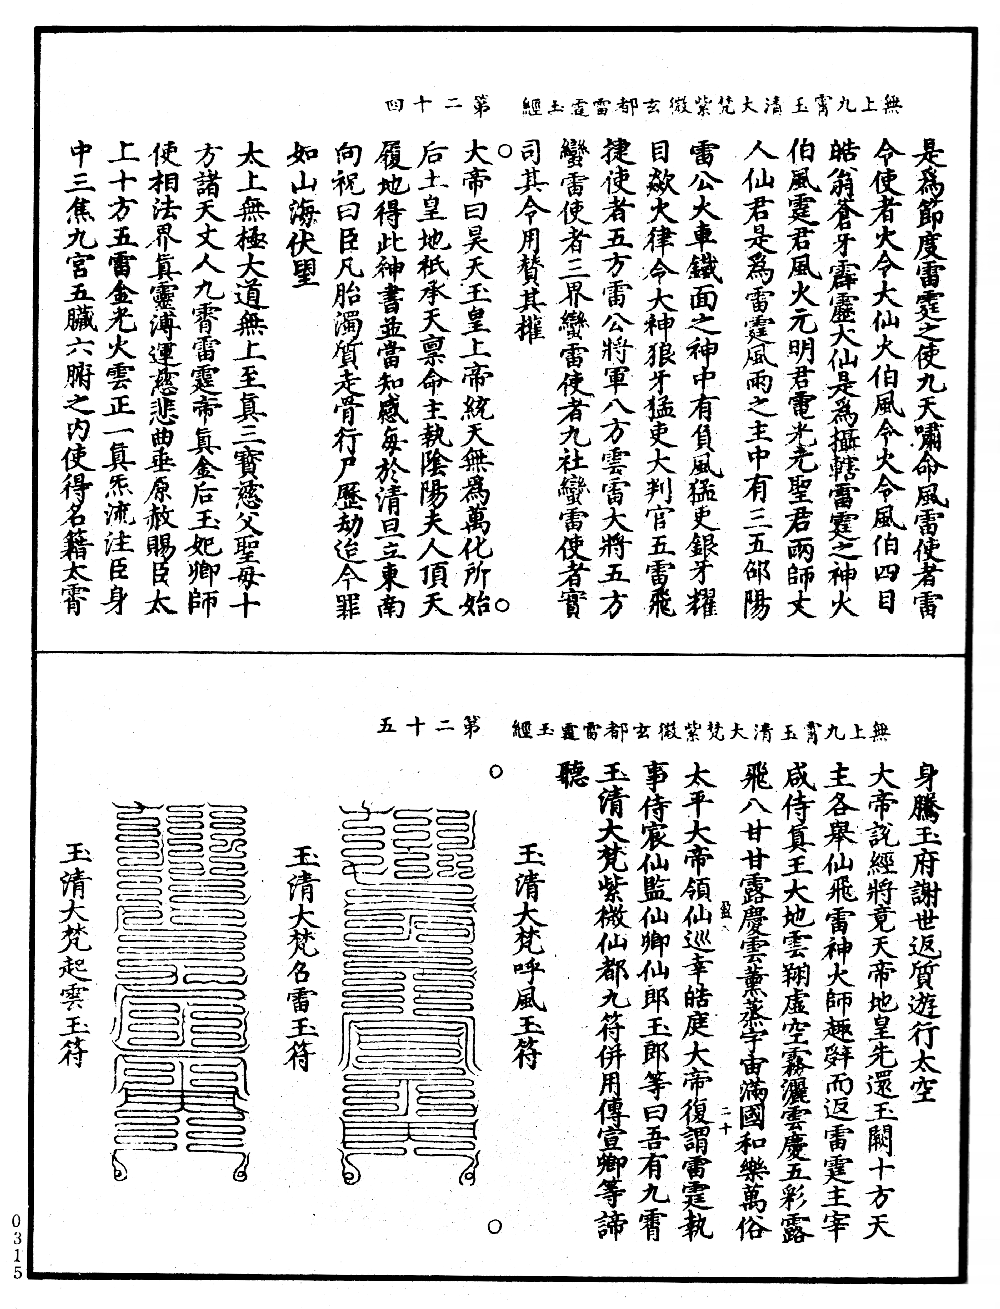 無上九霄玉清大梵紫微玄都雷霆玉經　第二十四
是爲節度雷霆之使九天嘯命風雷使者雷
令使者火令大仙火伯風令火令風伯四目
皓翁蒼牙霹靂大仙是爲攝轄雷霆之神火
伯風霆君風火元明君電光堯聖君雨師丈
人仙君是爲雷霆風雨之主中有三五邰陽
雷公火車鐵面之神中有負風猛吏銀牙耀
目歘火律令大神狼牙猛吏大判官五雷飛
捷使者五方雷公將軍八方雲雷大將五方
蠻雷使者三界蠻雷使者九社蠻雷使者實
司其令用贊其權
大帝曰昊天玉皇上帝統天無爲萬化所始
后土皇地祇承天禀命主執陰陽夫人頂天
履地得此神書並當知感每於清旦立東南
向祝曰臣凡胎濁質走骨行尸歷劫迨今罪
如山海伏望
太上無極大道無上至真三寶慈父聖母十
方諸天丈人九霄雷霆帝真金后玉妃卿師
使相法界真靈溥運慈悲曲垂原赦賜臣太
上十方五雷金光火雲正一真炁流注臣身
中三焦九宮五臟六腑之内使得名籍太霄
無上九霄玉清大梵紫微玄都雷霆玉經　第二十五
身騰玉府謝世返質遊行太空
大帝說經將竟天帝地皇先還玉闕十方天
主各舉仙飛雷神火師趣辭而返雷霆主宰
咸侍真王大地雲翔虛空霧灑雲慶五彩露
飛八甘甘露慶雲薰蒸宇宙滿國和樂萬俗
太平大帝領仙巡幸皓庭大帝復謂雷霆執
事侍宸仙監仙卿仙郎玉郎等曰吾有九霄
玉清大梵紫微仙都九符併用傳宣卿等諦
聽
二十
玉清大梵呼風玉符
玉清大梵召雷玉符
玉清大梵起雲玉符
0315